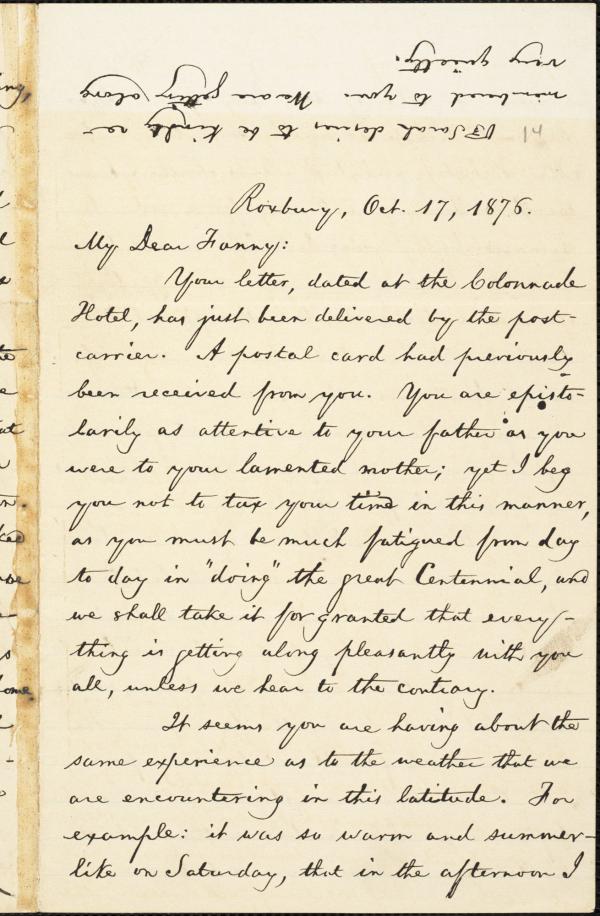 Sarah desires to be kindly re-
membered to you. We are getting along
very quietly.
14
Roxbury, Oct. 17, 1876.
My Dear Fanny:
Your letter, dated at the Colonnade
Hotel, has just been delivered by the post-
carrier. A postal card had previously
been received from you. You are episto-
larily as attentive to your father as you
were to your lamented mother; yet I beg
you not to tax your time in this manner,
as you must be much fatigued from day
to day in "doing" the great Centennial, and
we shall take it for granted that every-
thing is getting along pleasantly with you
all, unless we hear to the contrary.
It seems you are having about the
same experience as to the weather that we
are encountering in this latitude. For
example: it was so warm and summer-
like on Saturday, that in the afternoon I